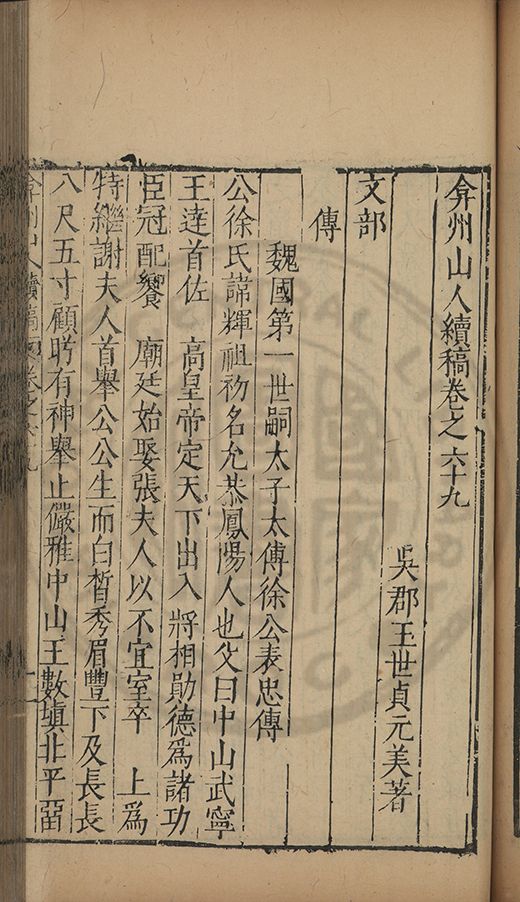 弇州山人續稿卷之六十九
吳郡王世貞元美著
文部
傳
魏國第一世嗣太子太傅徐公表忠傳
公徐氏諱輝祖初名允恭鳳陽人也父曰中山武寧
王達首佐 高皇帝定天下出入將相勛德爲諸功
臣冠配饗 廟廷始娶張夫人以不宜室卒 上爲
特繼謝夫人首舉公公生而白皙秀眉豐下及長長
八尺五寸顧盻有神舉止儼雅中山王數塡北平留
弇州山人續稿 卷之六十九